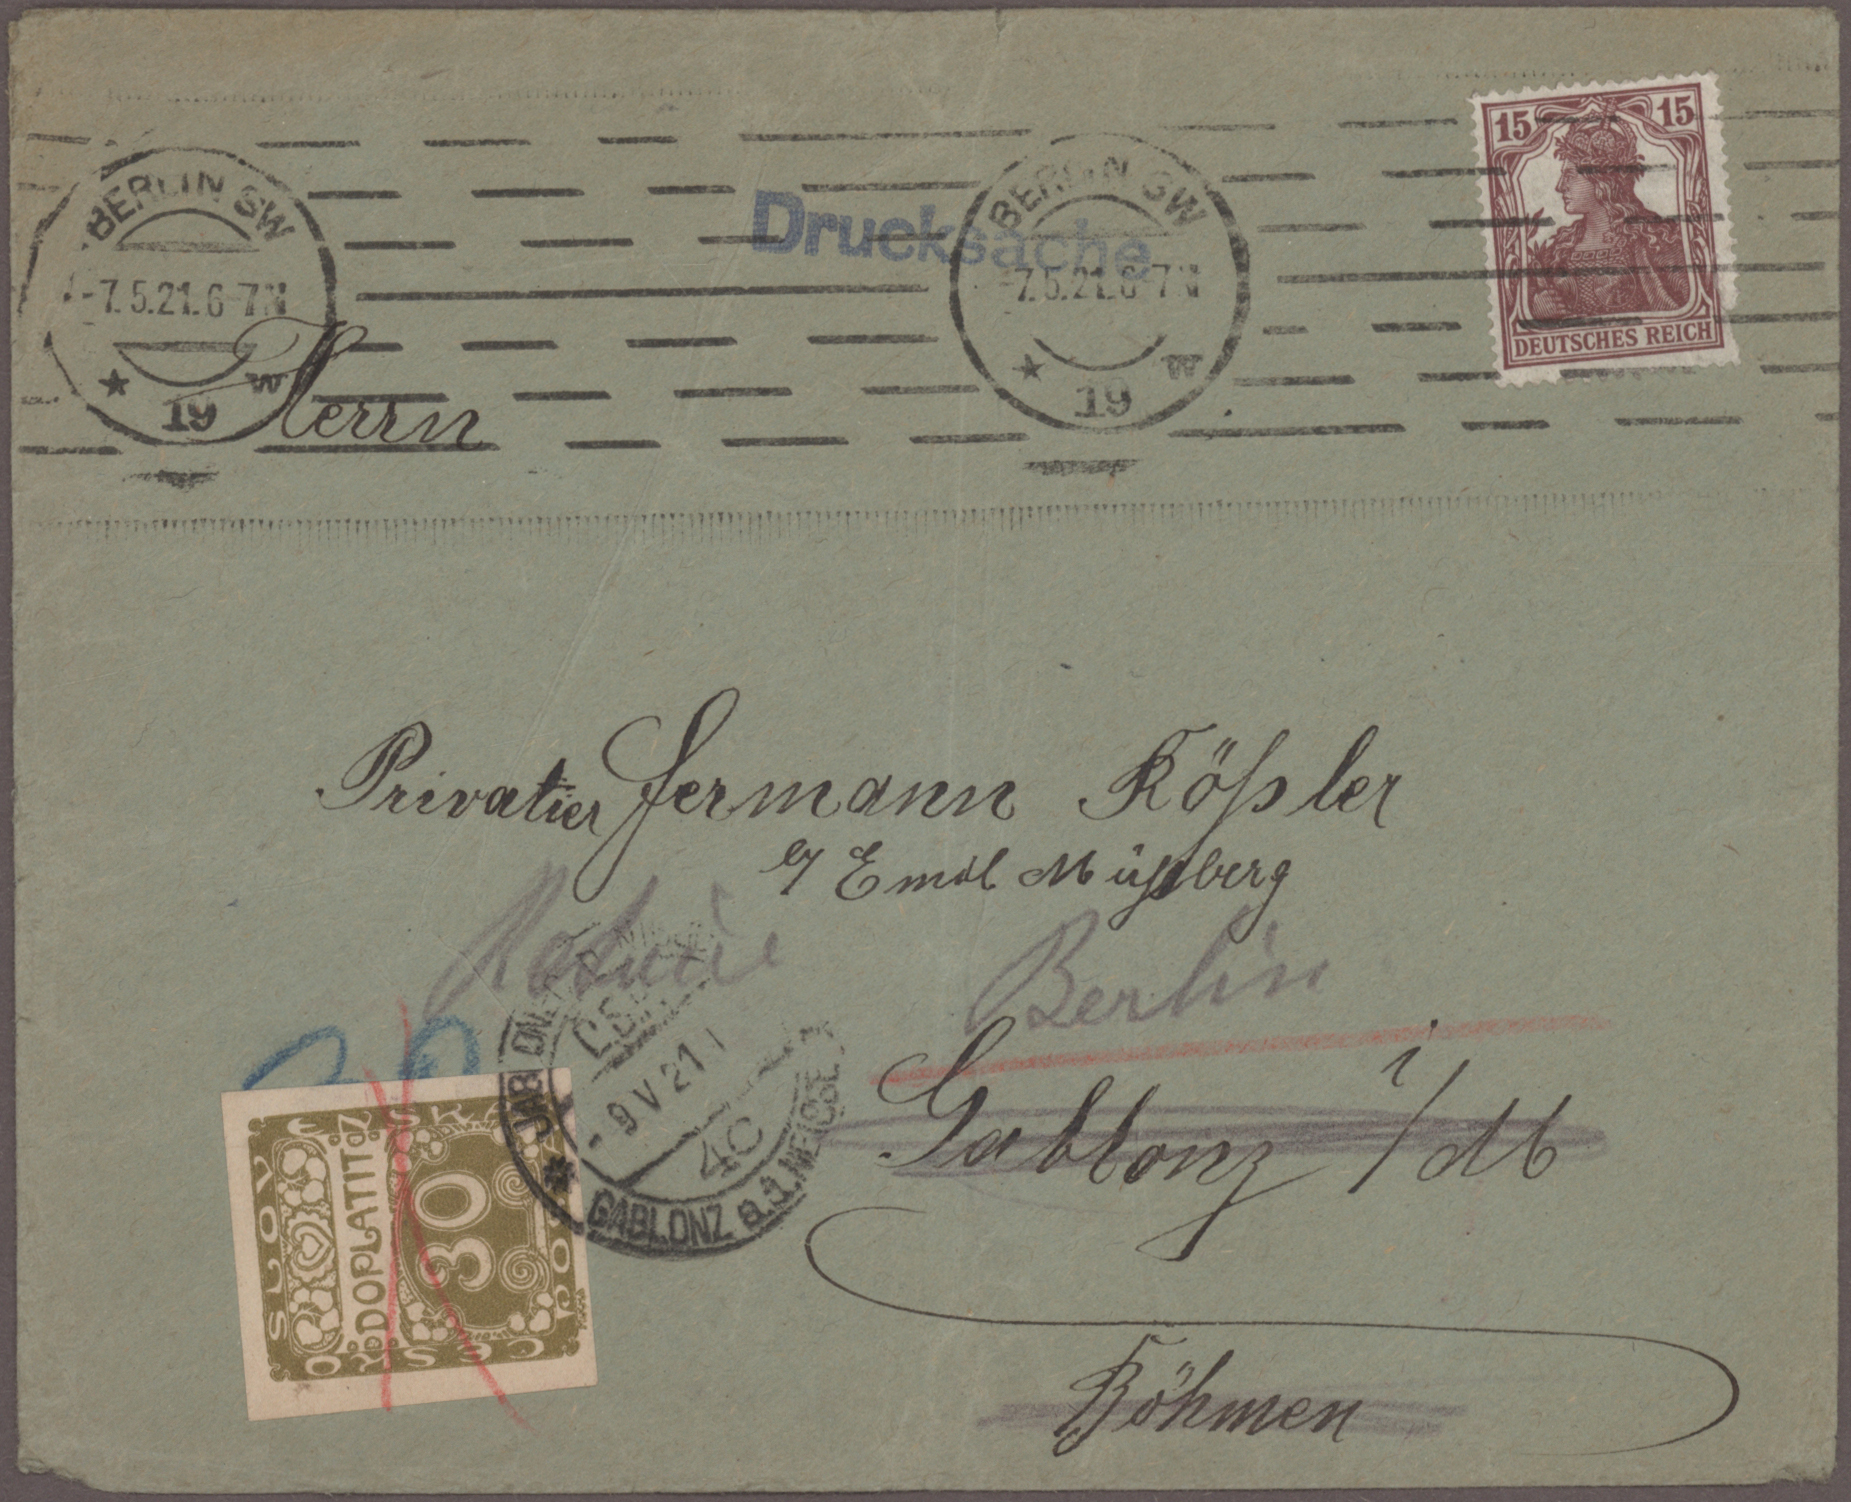 BERLIN SW
-7.5.21.6-7N
19 W
Drucksache
BERLIN SW
-7.5.21.6-7N
19 W
15 15
DEUTSCHES REICH
Herrn
Privatier Hermann Rößler
Emil
Retour Berlin
Gablonz i/
Böhmen
30
ČESKO
SLOVENSKÁ
POŠTA
DOPLATIT
30
-9 V 21
4c
GABLONZ a.d. NEISSE